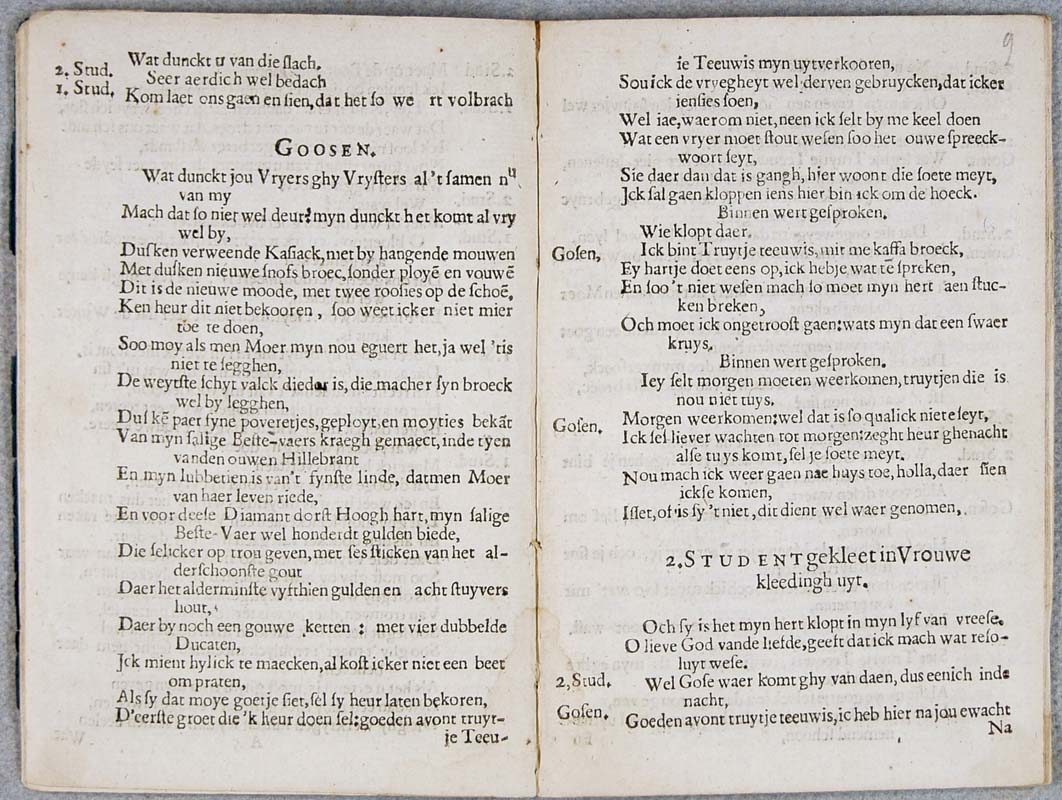 Wat dunckt u van die ſlach.
2. Stud. Seer aerdich wel bedach
1. Stud. Kom laet ons gaen en ſien, dat het ſo we rt volbrach
GOOSEN.
Wat dunckt jou Vryers ghy Vryſters al 't ſamen nu
van my
Mach dat ſo niet wel deur? myn dunckt het komt al vry
wel by,
Duſken verweende Kaſiack, met by hangende mouwen
Met duſken nieuwe ſnofs broec, ſonder ployē en vouwē
Dit is de nieuwe moode, met twee rooſies op de ſchoē,
Ken heur dit niet bekooren, ſoo weet icker niet mier
toe te doen,
Soo moy als men Moer myn nou eguert het, ja wel 'tis
niet te ſegghen,
De weytſte ſchyt valck dieder is, die macher ſyn broeck
wel by legghen,
Duſ kē paer fyne poveretjes, geployt, en moyties bekāt
Van myn ſalige Beſte-vaers kraegh gemaect, inde tyen
van den ouwen Hillebrant
En myn lubbetien is van't fynſte linde, datmen Moer
van haer leven riede,
En voor deeſe Diamant dorſt Hoogh hart, myn ſalige
Beſte-Vaer wel hondert gulden biede,
Die ſelicker op trou geven, met ſes ſticken van het al-
derſchoonſte gout
Daer het alderminſte vyfthien gulden en acht ſtuyvers
hout,
Daer by noch een gouwe ketten : met vier dubbelde
Ducaten,
Ick mient hylick te maecken, al koſt icker niet een beet
om praten,
Als ſy dat moye goetje ſiet, ſel ſy heur laten bekoren,
D'eerſte groet die 'k heur doen ſel: goeden avont truyt-
je Teeu-
9
je Teeuwis myn uytverkooren,
Sou ick de vryegheyt wel derven gebruycken, dat icker
ienſies ſoen,
Wel iae, waerom niet, neen ick ſelt by me keel doen
Wat een vryer moet ſtout weſen ſoo het ouwe ſpreeck-
woort ſeyt,
Sie daer dan dat is gangh, hier woont die ſoete meyt,
Ick ſal gaen kloppen iens hier bin ick om de hoeck.
Binnen wert geſproken.
Wie klopt daer.
Goſen, Ick bint Truytje teeuwis, mit me kaffa broeck,
Ey hartje doet eens op, ick hebje wat tē ſpreken,
En ſoo 't niet weſen mach ſo moet myn hert aen ſtuc-
ken breken,
Och moet ick ongetrooſt gaen: wats myn dat een ſwaer
kruys,
Binnen wert geſproken.
Iey ſelt morgen moeten weerkomen, truytjen die is
nou niet tuys,
Goſen. Morgen weerkomen: wel dat is ſo qualick niet eſeyt,
Ick ſel liever wachten tot morgen: zeght heur ghenacht
alſe tuys komt, ſel je ſoete meyt.
Nou mach ick weer gaen nae huys toe, holla, daer ſien
ickſe komen,
Iſſet, of is ſy 't niet, dit dient wel waer genomen,
2. STUDENT gekleet in Vrouwe
kleedingh uyt.
Och ſy is het myn hert klopt in myn lyf van vreeſe,
O lieve God vande liefde, geeft dat ick mach wat reſo-
luyt weſe.
2, Stud. Wel Goſe waer komt ghy van daen, dus eenich inde
nacht,
Goſen. Goeden avont truytje teeuwis, ic heb hier na jou ewacht
Na